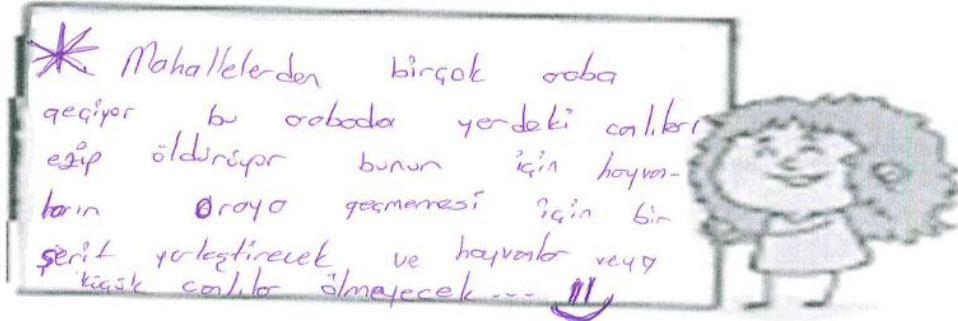 Mahallelerden birçok araba
geçiyor bu arabada yerdeki canlıları
ezip öldürüyor bunun için hayvan-
ların oraya geçmemesi için bir
şerit yerleştirecek ve hayvanlar veya
küçük canlılar ölmeyecek...